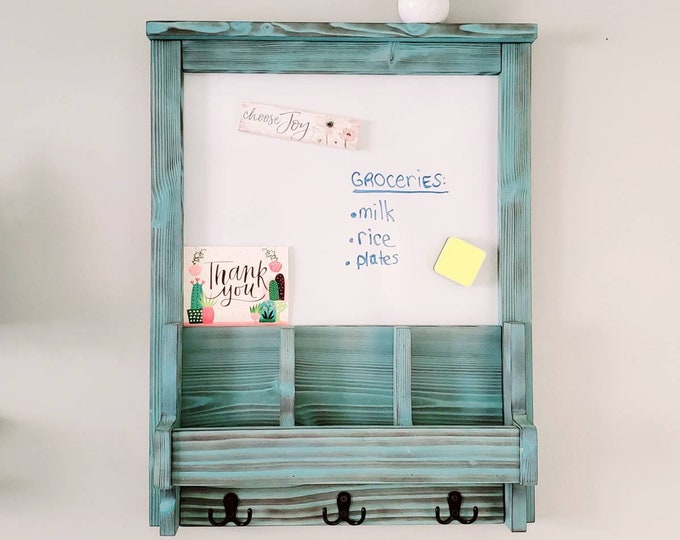 choose Joy
GROCERIES:
• milk
• rice
• plates
Thank
you